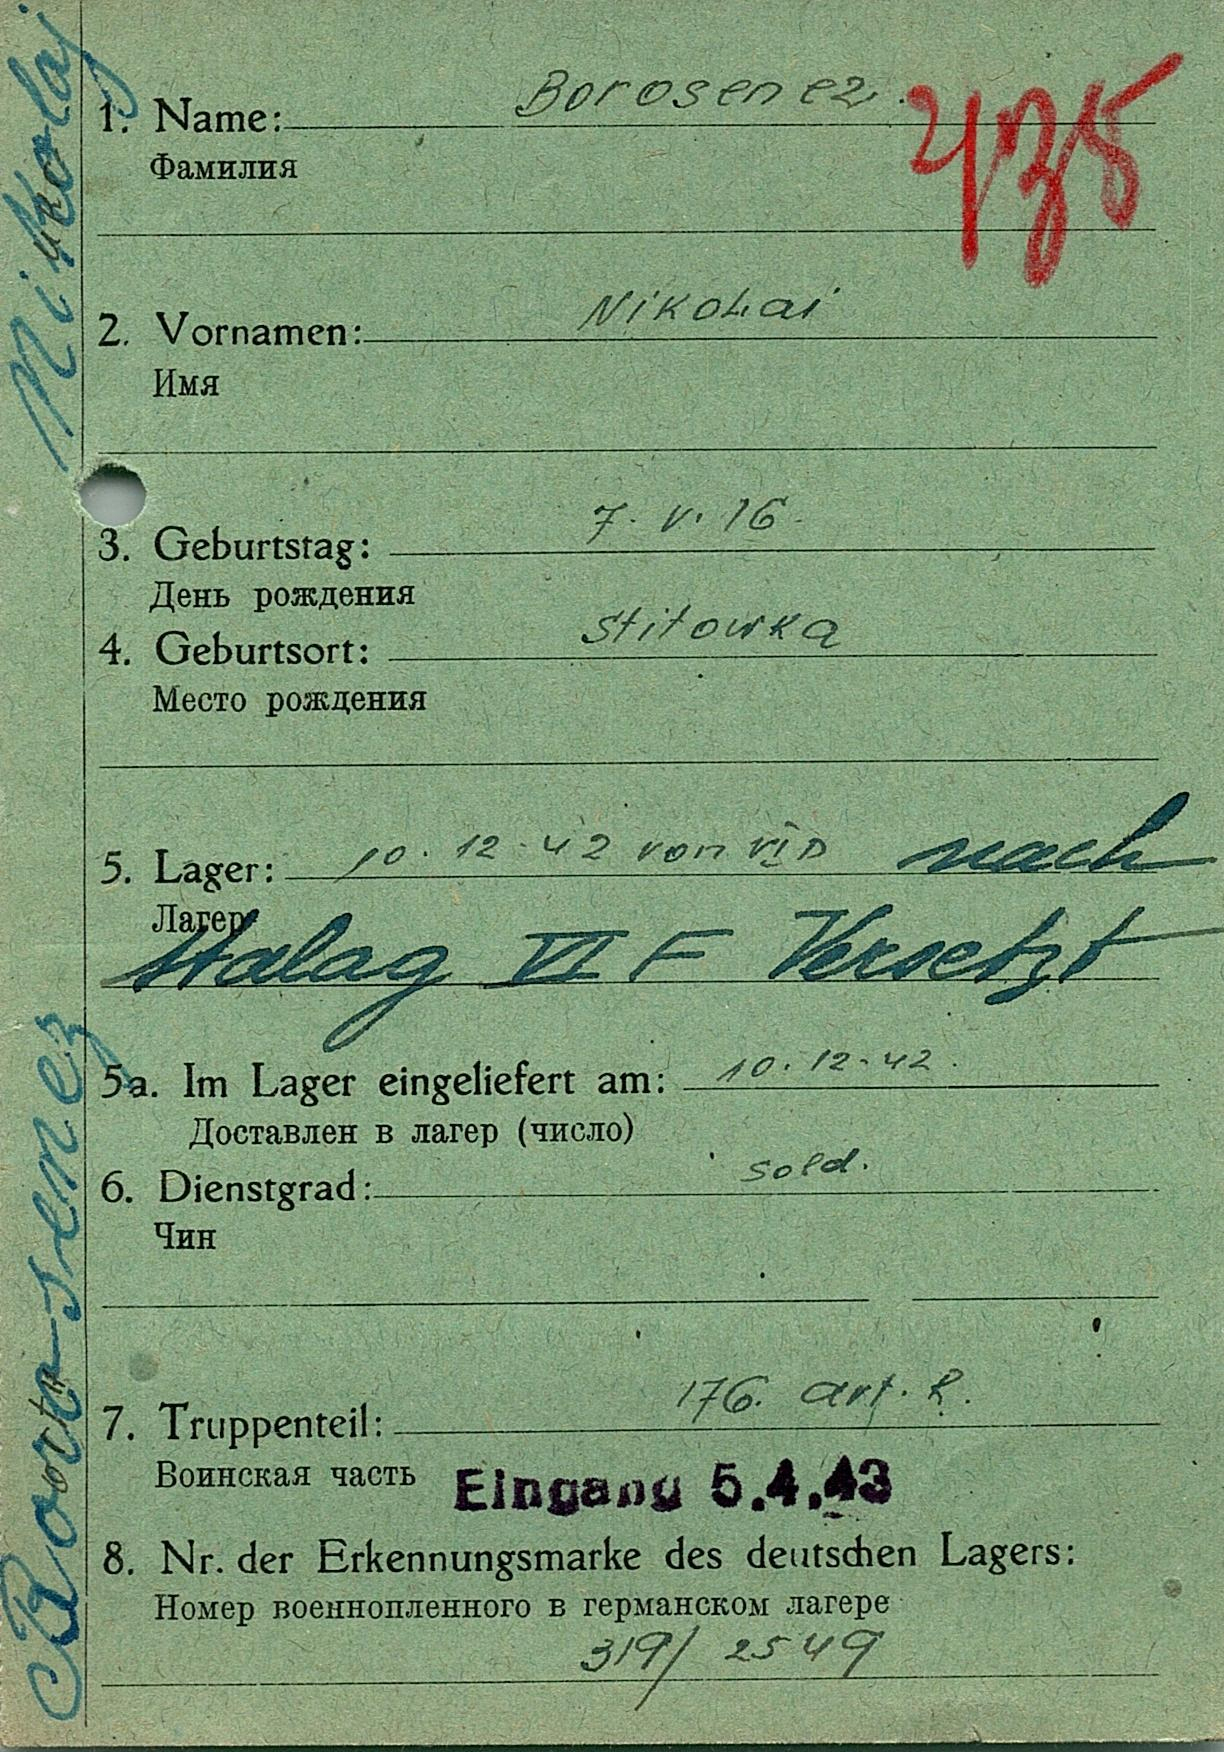 1. Name: Borosenez.
435
Фамилия
2. Vornamen: Nikolai
Имя
3. Geburtstag: 7. V. 16.
День рождения
4. Geburtsort: Stitowka
Место рождения
5. Lager: 10. 12. 42 von VI D nach
Лагер
Stalag VI F Versetzt
5a. Im Lager eingeliefert am: 10. 12. 42.
Доставлен в лагер (число)
6. Dienstgrad: Sold.
Чин
7. Truppenteil: 176. art. R.
Воинская часть
Eingang 5.4.43
8. Nr. der Erkennungsmarke des deutschen Lagers:
Номер военнопленного в германском лагере
319/ 2549
Nikolaj